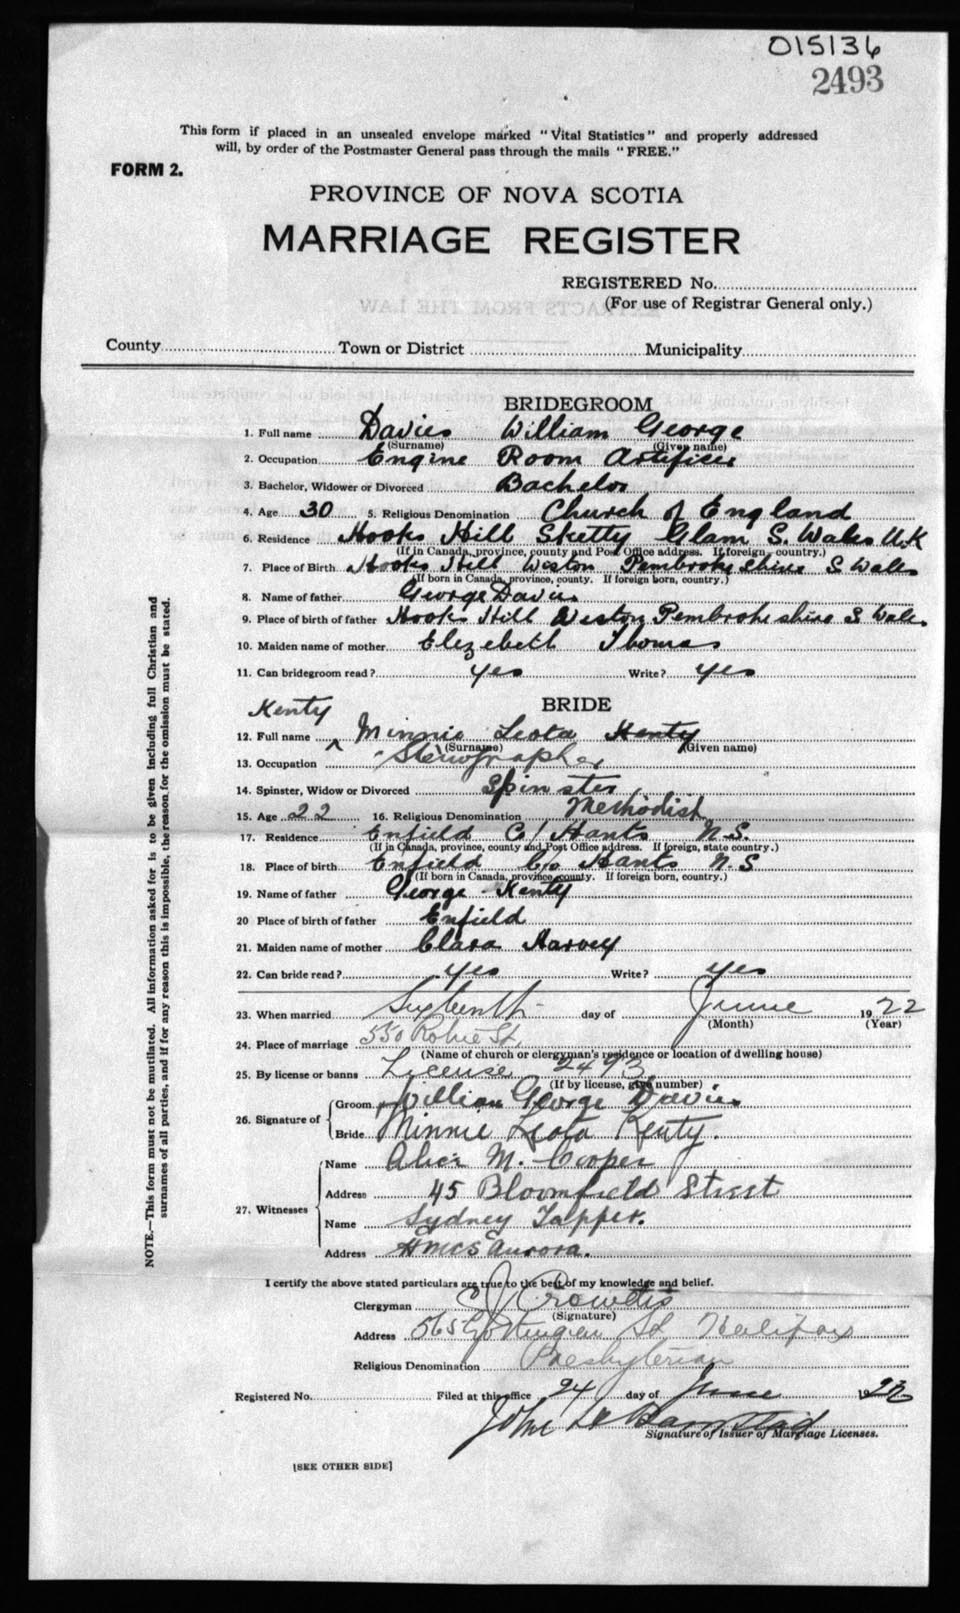 015136
2493
This form if placed in an unsealed envelope marked "Vital Statistics" and properly addressed
will, by order of the Postmaster General pass through the mails "FREE."
FORM 2.
PROVINCE OF NOVA SCOTIA
MARRIAGE REGISTER
REGISTERED No.
(For use of Registrar General only.)
County Town or District Municipality
BRIDEGROOM
1. Full name Davies William George
(Surname) (Given name)
2. Occupation Engine Room Artificer
3. Bachelor, Widower or Divorced Bachelor
4. Age 30 5. Religious Denomination Church of England
6. Residence Hooks Hill Sketty Glam S. Wales U.K
(If in Canada, province, county and Post Office address. If foreign, country.)
7. Place of Birth Hooks Hill Weston Pembrokeshire S Wales
(If born in Canada, province, county. If foreign born, country.)
8. Name of father George Davies
9. Place of birth of father Hooks Hill Weston Pembrokeshire S Wales
10. Maiden name of mother Elezebeth Thomas
11. Can bridegroom read? yes Write? yes
BRIDE
Kenty
12. Full name ^ Minnie Leota Kenty
(Surname) (Given name)
13. Occupation Stenographer
14. Spinster, Widow or Divorced Spinster
15. Age 22 16. Religious Denomination Methodist
17. Residence Enfield Co/ Hants N.S.
(If in Canada, province, county and Post Office address. If foreign, state country.)
18. Place of birth Enfield Co Hants N.S
(If born in Canada, province, county. If foreign born, country.)
19. Name of father George Kenty
20 Place of birth of father Enfield
21. Maiden name of mother Clara Harvey
22. Can bride read? yes Write? yes
23. When married Sixteenth day of June 1922
(Month) (Year)
24. Place of marriage 550 Robie St.
(Name of church or clergyman's residence or location of dwelling house)
25. By license or banns License 2493
(If by license, give number)
26. Signature of Groom William George Davies
Bride Minnie Leota Kenty.
27. Witnesses Name Alice M. Cooper
Address 45 Bloomfield Street
Name Sydney Tapper.
Address HMCS Aurora.
I certify the above stated particulars are true to the best of my knowledge and belief.
Clergyman C J Crowdis
(Signature)
Address 565 Gottingen St Halifax
Religious Denomination Presbyterian
Registered No. Filed at this office 24 day of June 1922
John
Signature of Issuer of Marriage Licenses.
[SEE OTHER SIDE]
NOTE.—This form must not be mutilated. All information asked for is to be given including full Christian and
surnames of all parties, and if for any reason this is impossible, the reason for the omission must be stated.